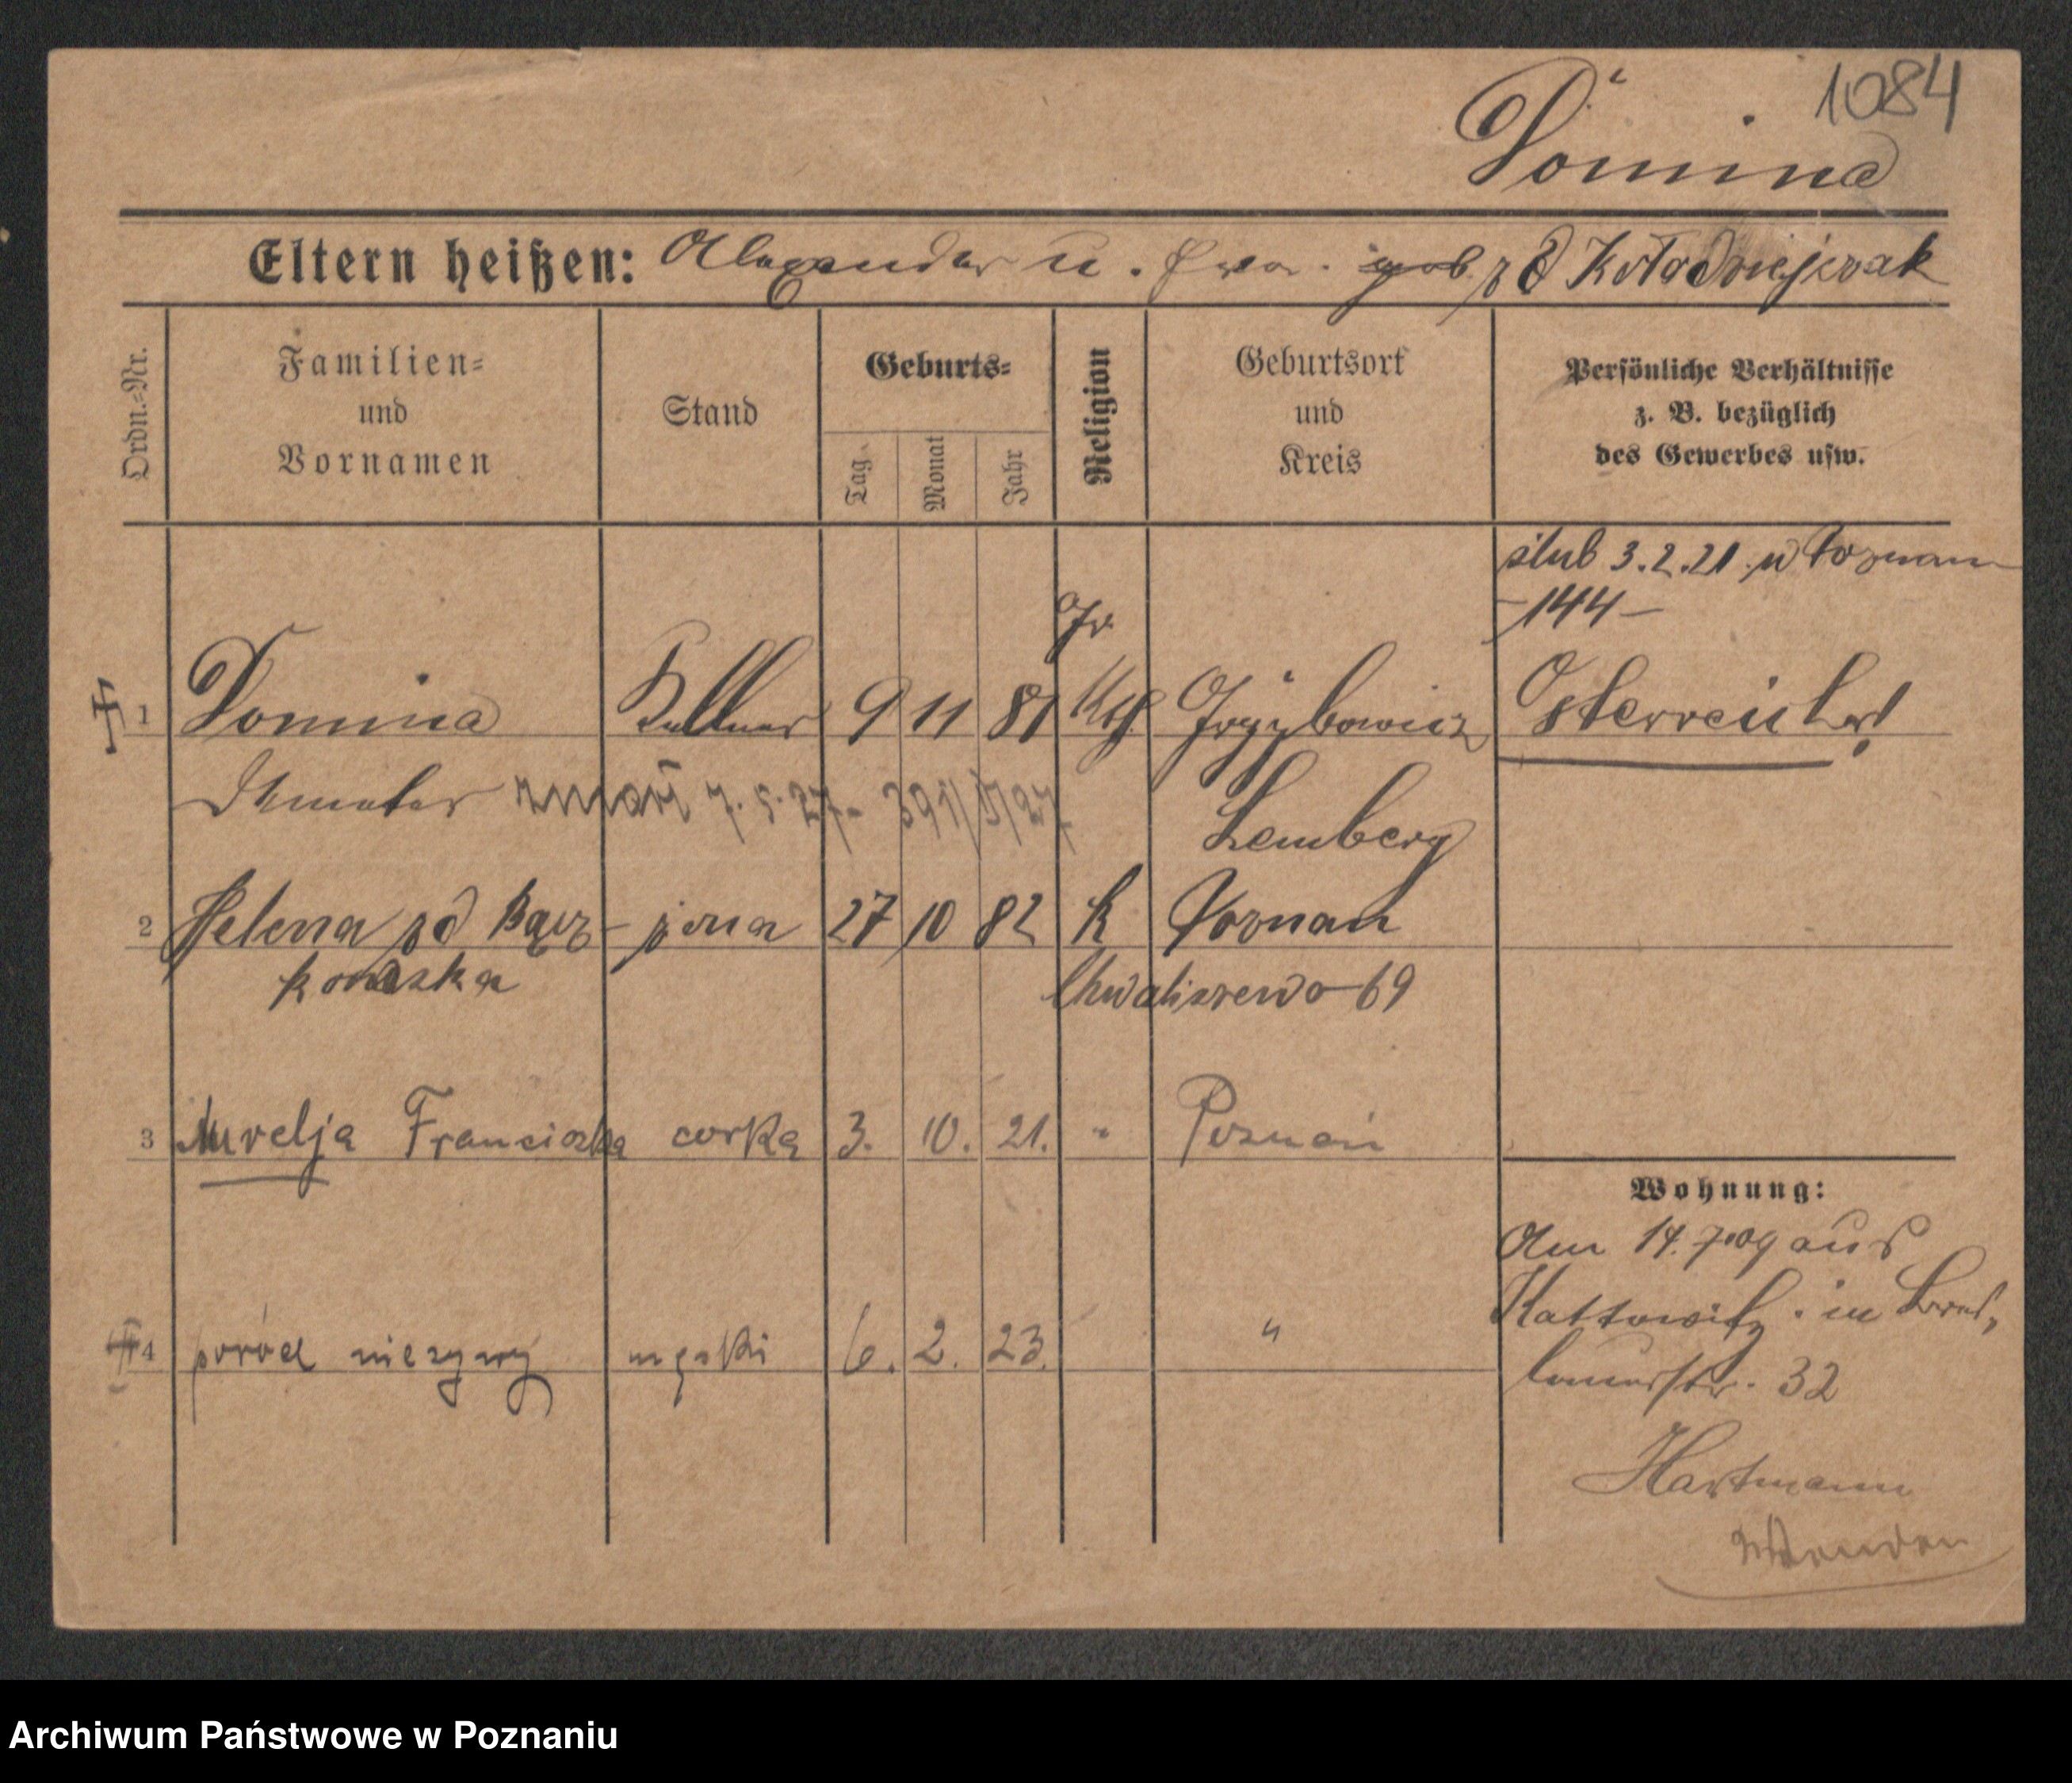 1084
Domina
Eltern heißen: Alexander u. Ewa. geb. zd Kołodziejczak
Ordn.=Nr.
Familien=
und
Vornamen
Stand
Geburts=
Tag
Monat
Jahr
Religion
Geburtsort
und
Kreis
Persönliche Verhältnisse
z. B. bezüglich
des Gewerbes usw.
ślub 3.2.21 w Poznan
-144-
Gr
1 Domina Kellner 9 11 81 Kth Grzybowicz Österreicher!
Demeter zmarł 7.5.27- 391/V/27
Lemberg
2 Helena zd Bącz- żona 27 10 82 k Poznan
kowska Chwaliszewo 69
3 Aurelja Franciszka corka 3. 10. 21. " Poznań
Wohnung:
Am 14.7.09 aus
Kattowitz. in
32
4 poród nieżywy męski 6. 2. 23. "
Hartmann
Archiwum Państwowe w Poznaniu